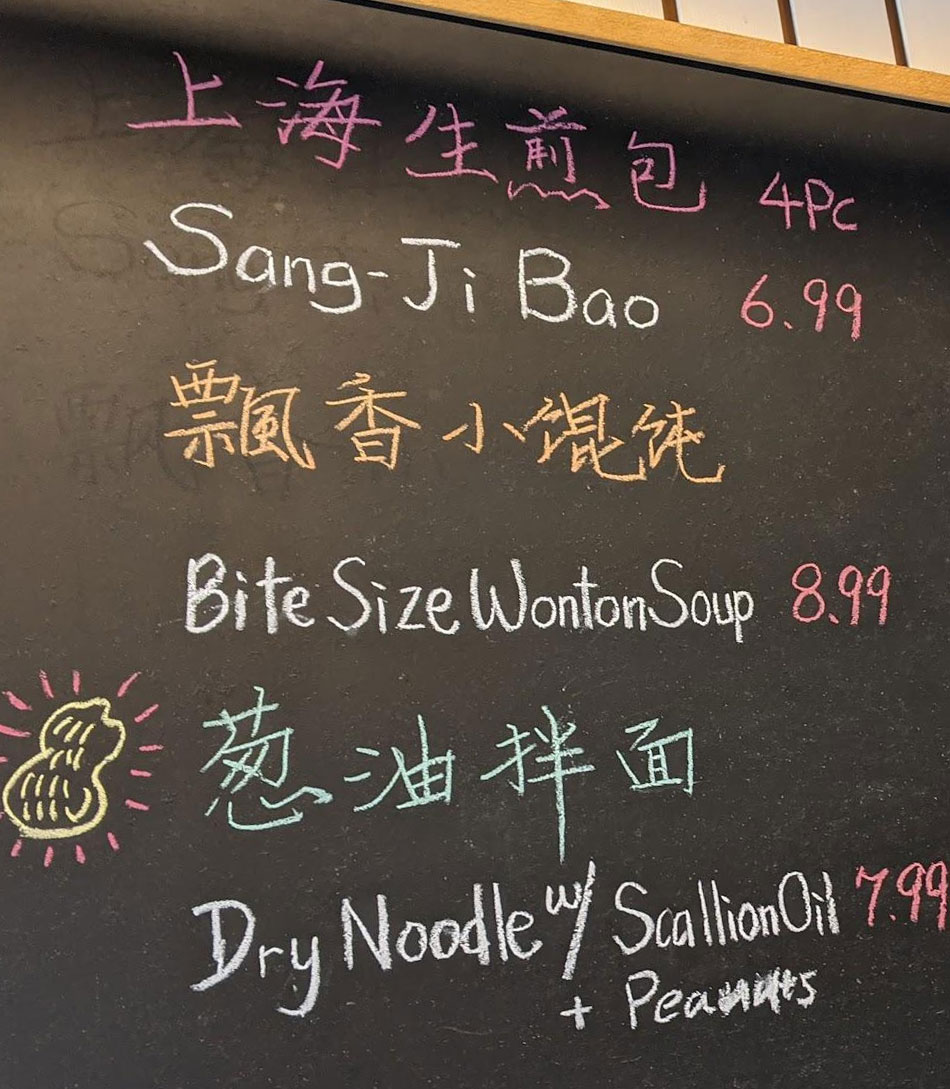 上海生煎包 4Pc
Sang-Ji Bao 6.99
飘香小馄饨
Bite Size Wonton Soup 8.99
葱油拌面
Dry Noodle w/ Scallion Oil 7.99
+ Peanuts